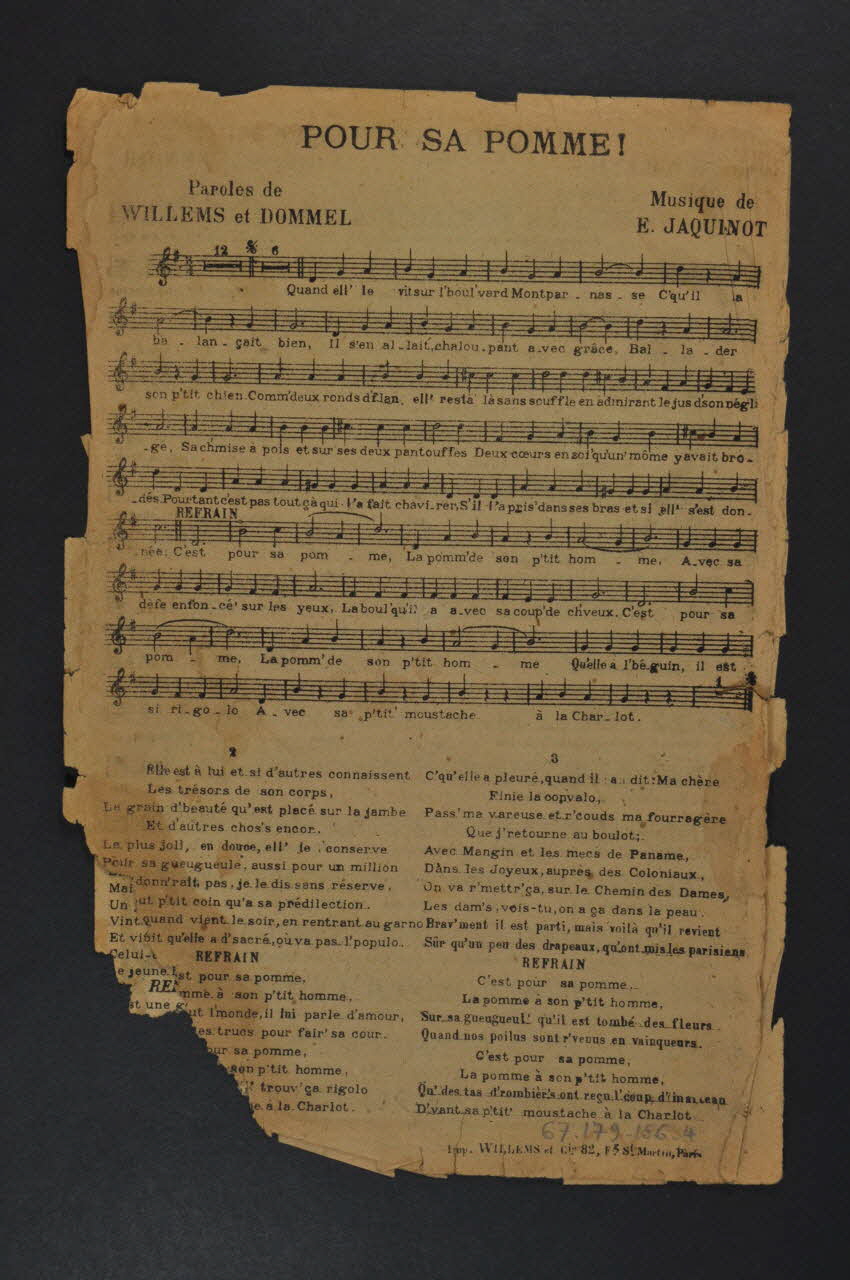 POUR SA POMME!
Paroles de
WILLEMS et DOMMEL
Musique de
E. JAQUINOT
12 6
Quand ell' le vit sur l'boul'vard Montpar - nas - se C'qu'il la
ba - lan - çait bien, Il s'en al - lait, chalou - pant a - vec grâce, Bal - la - der
son p'tit chien. Comm' deux ronds d'flan, ell' resta là sans souffle en admirant le jus d'son négli
-ge, Sa chmise à pois et sur ses deux pantouffes Deux cœurs en soi' qu'un' môme y avait bro-
-dés. Pourtant c'est pas tout çà qui l'a fait chavi - rer, S'il l'a pris' dans ses bras et si ell' s'est don-
REFRAIN
née: C'est pour sa pom - me, La pomm' de son p'tit hom - me, A - vec sa
défe enfon - cé' sur les yeux, La boul' qu'il a a - vec sa coup' de ch'veux. C'est pour sa
pom - me, La pomm' de son p'tit hom - me Qu'elle a l'bé - guin, il est
si ri - go - lo A - vec sa p'tit' moustache à la Char - lot.
2
Elle est à lui et si d'autres connaissent
Les trésors de son corps,
Le grain d'beauté qu'est placé sur la jambe
Et d'autres chos's encor.
Le plus joli, en douce, ell' le conserve
Pour sa gueugueule, aussi pour un million
Mai donn'rait pas, je le dis sans réserve,
Un ut p'tit coin qu'a sa prédilection.
Vint quand vient le soir, en rentrant au garno
Et vi qu'elle a d'sacré, ou va pas l'populo.
Celui-
REFRAIN
e jeune est pour sa pomme,
RE mme à son p'tit homme,
st une ut l'monde, il lui parle d'amour,
es trucs pour fair' sa cour.
our sa pomme,
son p'tit homme,
trouv' ça rigolo
e à la Charlot.
3
C'qu'elle a pleuré, quand il a dit: Ma chère
Finie la convalo,
Pass' ma vareuse et r'couds ma fourragère
Que j'retourne au boulot;
Avec Mangin et les mecs de Paname,
Dans les Joyeux, auprès des Coloniaux,
On va r'mettr' ça, sur le Chemin des Dames,
Les dam's, vois-tu, on a ça dans la peau.
Brav'ment il est parti, mais voilà qu'il revient
Sûr qu'un peu des drapeaux, qu'ont mis les parisiens
REFRAIN
C'est pour sa pomme,
La pomme à son p'tit homme,
Sur sa gueugueul' qu'il est tombé des fleurs
Quand nos poilus sont r'venus en vainqueurs.
C'est pour sa pomme,
La pomme à son p'tit homme,
Qu' des tas d'rombièr's ont reçu l'coup d'
D'vant sa p'tit' moustache à la Charlot
67.179.156.4
Imp. WILLEMS et Cie 82, Fg St Martin, Paris